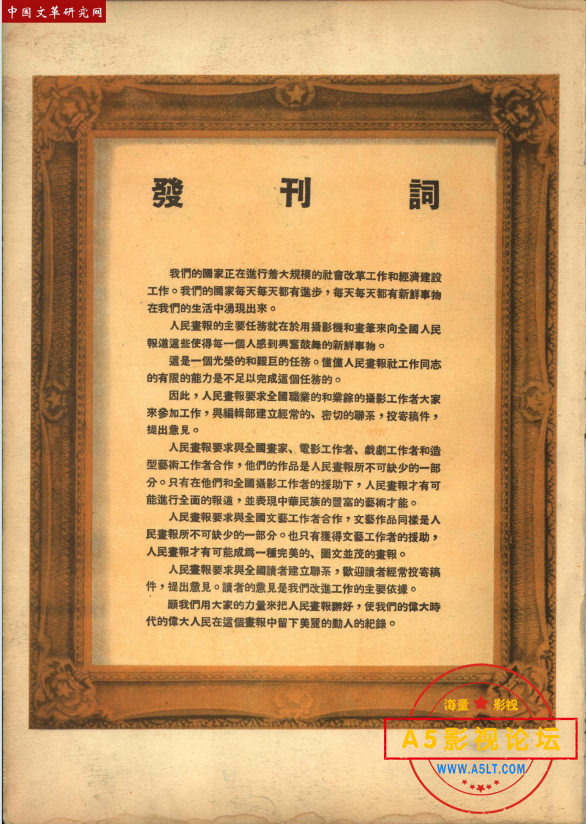 中国文革研究网
發刊詞
我們的國家正在進行着大規模的社會改革工作和經濟建設
工作。我們的國家每天每天都有進步，每天每天都有新鮮事物
在我們的生活中湧現出來。
人民畫報的主要任務就在於用攝影機和畫筆來向全國人民
報道這些使得每一個人感到興奮鼓舞的新鮮事物。
這是一個光榮的和艱巨的任務。僅僅人民畫報社工作同志
的有限的能力是不足以完成這個任務的。
因此，人民畫報要求全國職業的和業餘的攝影工作者大家
來參加工作，與編輯部建立經常的、密切的聯系，投寄稿件，
提出意見。
人民畫報要求與全國畫家、電影工作者、戲劇工作者和造
型藝術工作者合作，他們的作品是人民畫報所不可缺少的一部
分。只有在他們和全國攝影工作者的援助下，人民畫報才有可
能進行全面的報道，並表現中華民族的豐富的藝術才能。
人民畫報要求與全國文藝工作者合作，文藝作品同樣是人
民畫報所不可缺少的一部分。也只有獲得文藝工作者的援助，
人民畫報才有可能成爲一種完美的、圖文並茂的畫報。
人民畫報要求與全國讀者建立聯系，歡迎讀者經常投寄稿
件，提出意見。讀者的意見是我們改進工作的主要依據。
願我們用大家的力量來把人民畫報辦好，使我們的偉大時
代的偉大人民在這個畫報中留下美麗的動人的紀錄。
海量★影视
A5影视论坛
WWW.A5LT.COM